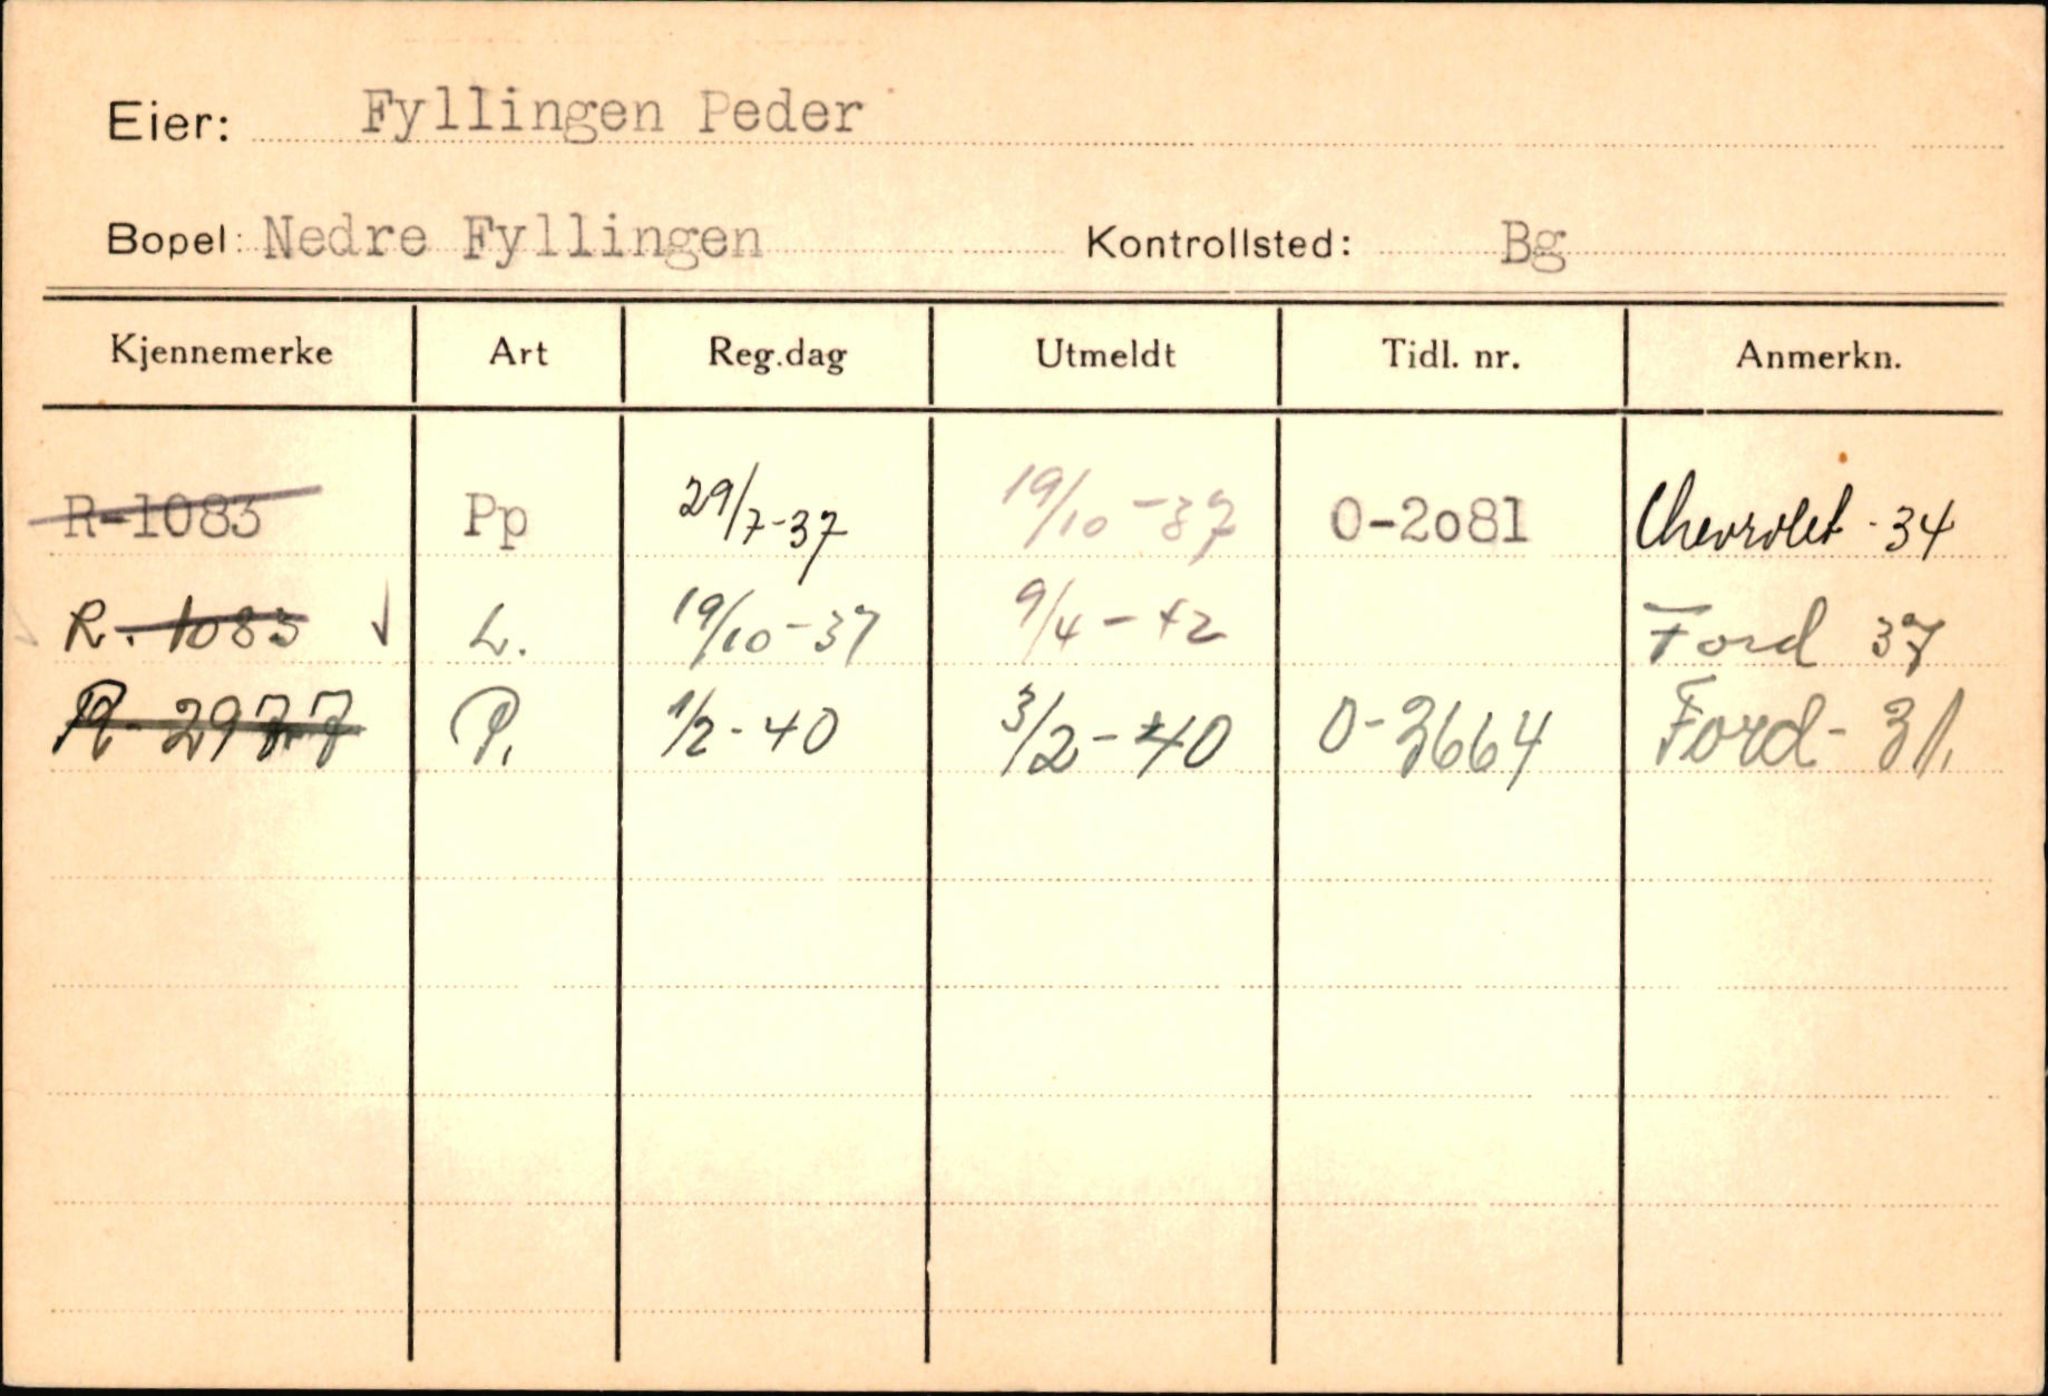 Eier: Fyllingen Peder
Bopel: Nedre Fyllingen Kontrollsted: Bg
Kjennemerke Art Reg.dag Utmeldt Tidl. nr. Anmerkn.
R-1083 Pp 29/7-37 19/10-37 O-2o81 Chevrolet-34
R.-1083 L. 19/10-37 9/4-42 Ford 37
R-2977 P. 1/2-40 3/2-40 O-3664 Ford-31.